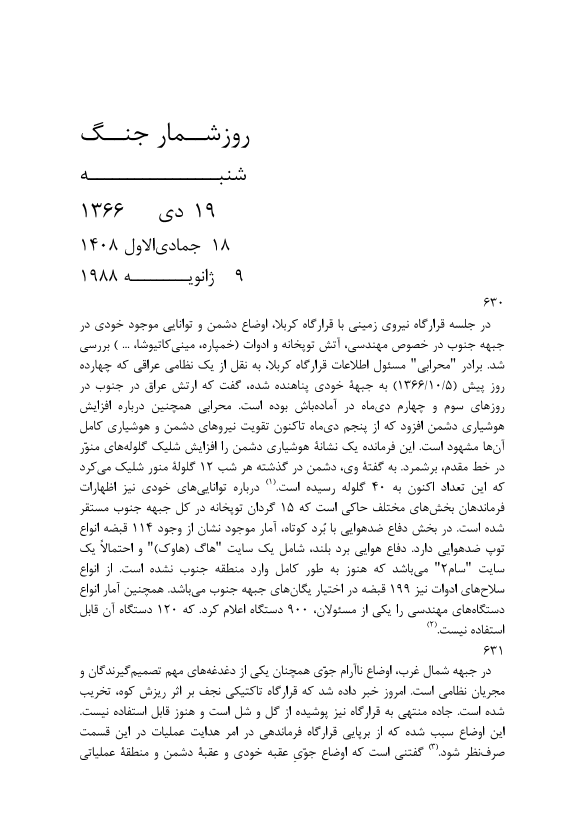 روزشمار جنگ
شنبه
۱۹ دی ۱۳۶۶
۱۸ جمادی‌الاول ۱۴۰۸
۹ ژانویه ۱۹۸۸
۶۳۰
در جلسه قرارگاه نیروی زمینی با قرارگاه کربلا، اوضاع دشمن و توانایی موجود خودی در
جبهه جنوب در خصوص مهندسی، آتش توپخانه و ادوات (خمپاره، مینی‌کاتیوشا، ... ) بررسی
شد. برادر "محرابی" مسئول اطلاعات قرارگاه کربلا، به نقل از یک نظامی عراقی که چهارده
روز پیش (۱۳۶۶/۱۰/۵) به جبههٔ خودی پناهنده شده، گفت که ارتش عراق در جنوب در
روزهای سوم و چهارم دی‌ماه در آماده‌باش بوده است. محرابی همچنین درباره افزایش
هوشیاری دشمن افزود که از پنجم دی‌ماه تاکنون تقویت نیروهای دشمن و هوشیاری کامل
آن‌ها مشهود است. این فرمانده یک نشانهٔ هوشیاری دشمن را افزایش شلیک گلوله‌های منوّر
در خط مقدم، برشمرد. به گفتهٔ وی، دشمن در گذشته هر شب ۱۲ گلولهٔ منور شلیک می‌کرد
که این تعداد اکنون به ۴۰ گلوله رسیده است.(۱) درباره توانایی‌های خودی نیز اظهارات
فرماندهان بخش‌های مختلف حاکی است که ۱۵ گردان توپخانه در کل جبهه جنوب مستقر
شده است. در بخش دفاع ضدهوایی با بُرد کوتاه، آمار موجود نشان از وجود ۱۱۴ قبضه انواع
توپ ضدهوایی دارد. دفاع هوایی برد بلند، شامل یک سایت "هاگ (هاوک)" و احتمالاً یک
سایت "سام۲" می‌باشد که هنوز به طور کامل وارد منطقه جنوب نشده است. از انواع
سلاح‌های ادوات نیز ۱۹۹ قبضه در اختیار یگان‌های جبهه جنوب می‌باشد. همچنین آمار انواع
دستگاه‌های مهندسی را یکی از مسئولان، ۹۰۰ دستگاه اعلام کرد. که ۱۲۰ دستگاه آن قابل
استفاده نیست.(۲)
۶۳۱
در جبهه شمال غرب، اوضاع ناآرام جوّی همچنان یکی از دغدغه‌های مهم تصمیم‌گیرندگان و
مجریان نظامی است. امروز خبر داده شد که قرارگاه تاکتیکی نجف بر اثر ریزش کوه، تخریب
شده است. جاده منتهی به قرارگاه نیز پوشیده از گل و شل است و هنوز قابل استفاده نیست.
این اوضاع سبب شده که از برپایی قرارگاه فرماندهی در امر هدایت عملیات در این قسمت
صرف‌نظر شود.(۳) گفتنی است که اوضاع جوّیِ عقبه خودی و عقبهٔ دشمن و منطقهٔ عملیاتی